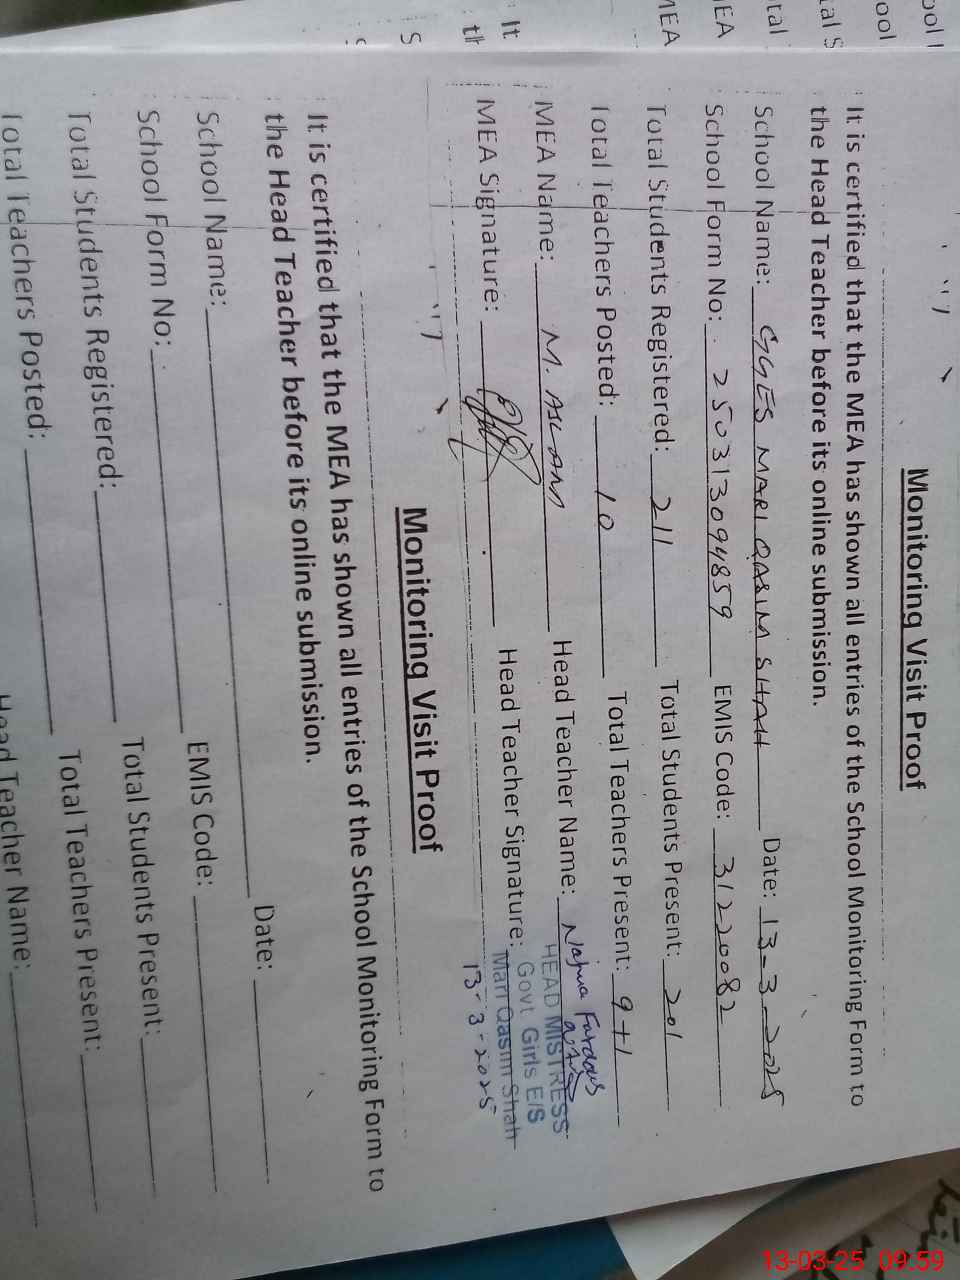 Monitoring Visit Proof
It is certified that the MEA has shown all entries of the School Monitoring Form to
the Head Teacher before its online submission.
School Name: GGES MARI QASIM SHAH Date: 13-3-2025
School Form No: 250313094859 EMIS Code: 31220082
Total Students Registered: 211 Total Students Present: 201
Total Teachers Posted: 10 Total Teachers Present: 9+1
MEA Name: M. ASLAM Head Teacher Name: Najma Fardous
MEA Signature: Head Teacher Signature:
HEAD MISTRESS
Govt Girls E/S
Mari Qasim Shah
13-3-2025
Monitoring Visit Proof
It is certified that the MEA has shown all entries of the School Monitoring Form to
the Head Teacher before its online submission.
School Name: Date:
School Form No: EMIS Code:
Total Students Registered: Total Students Present:
Total Teachers Posted: Total Teachers Present:
Head Teacher Name:
13-03-25 09:59